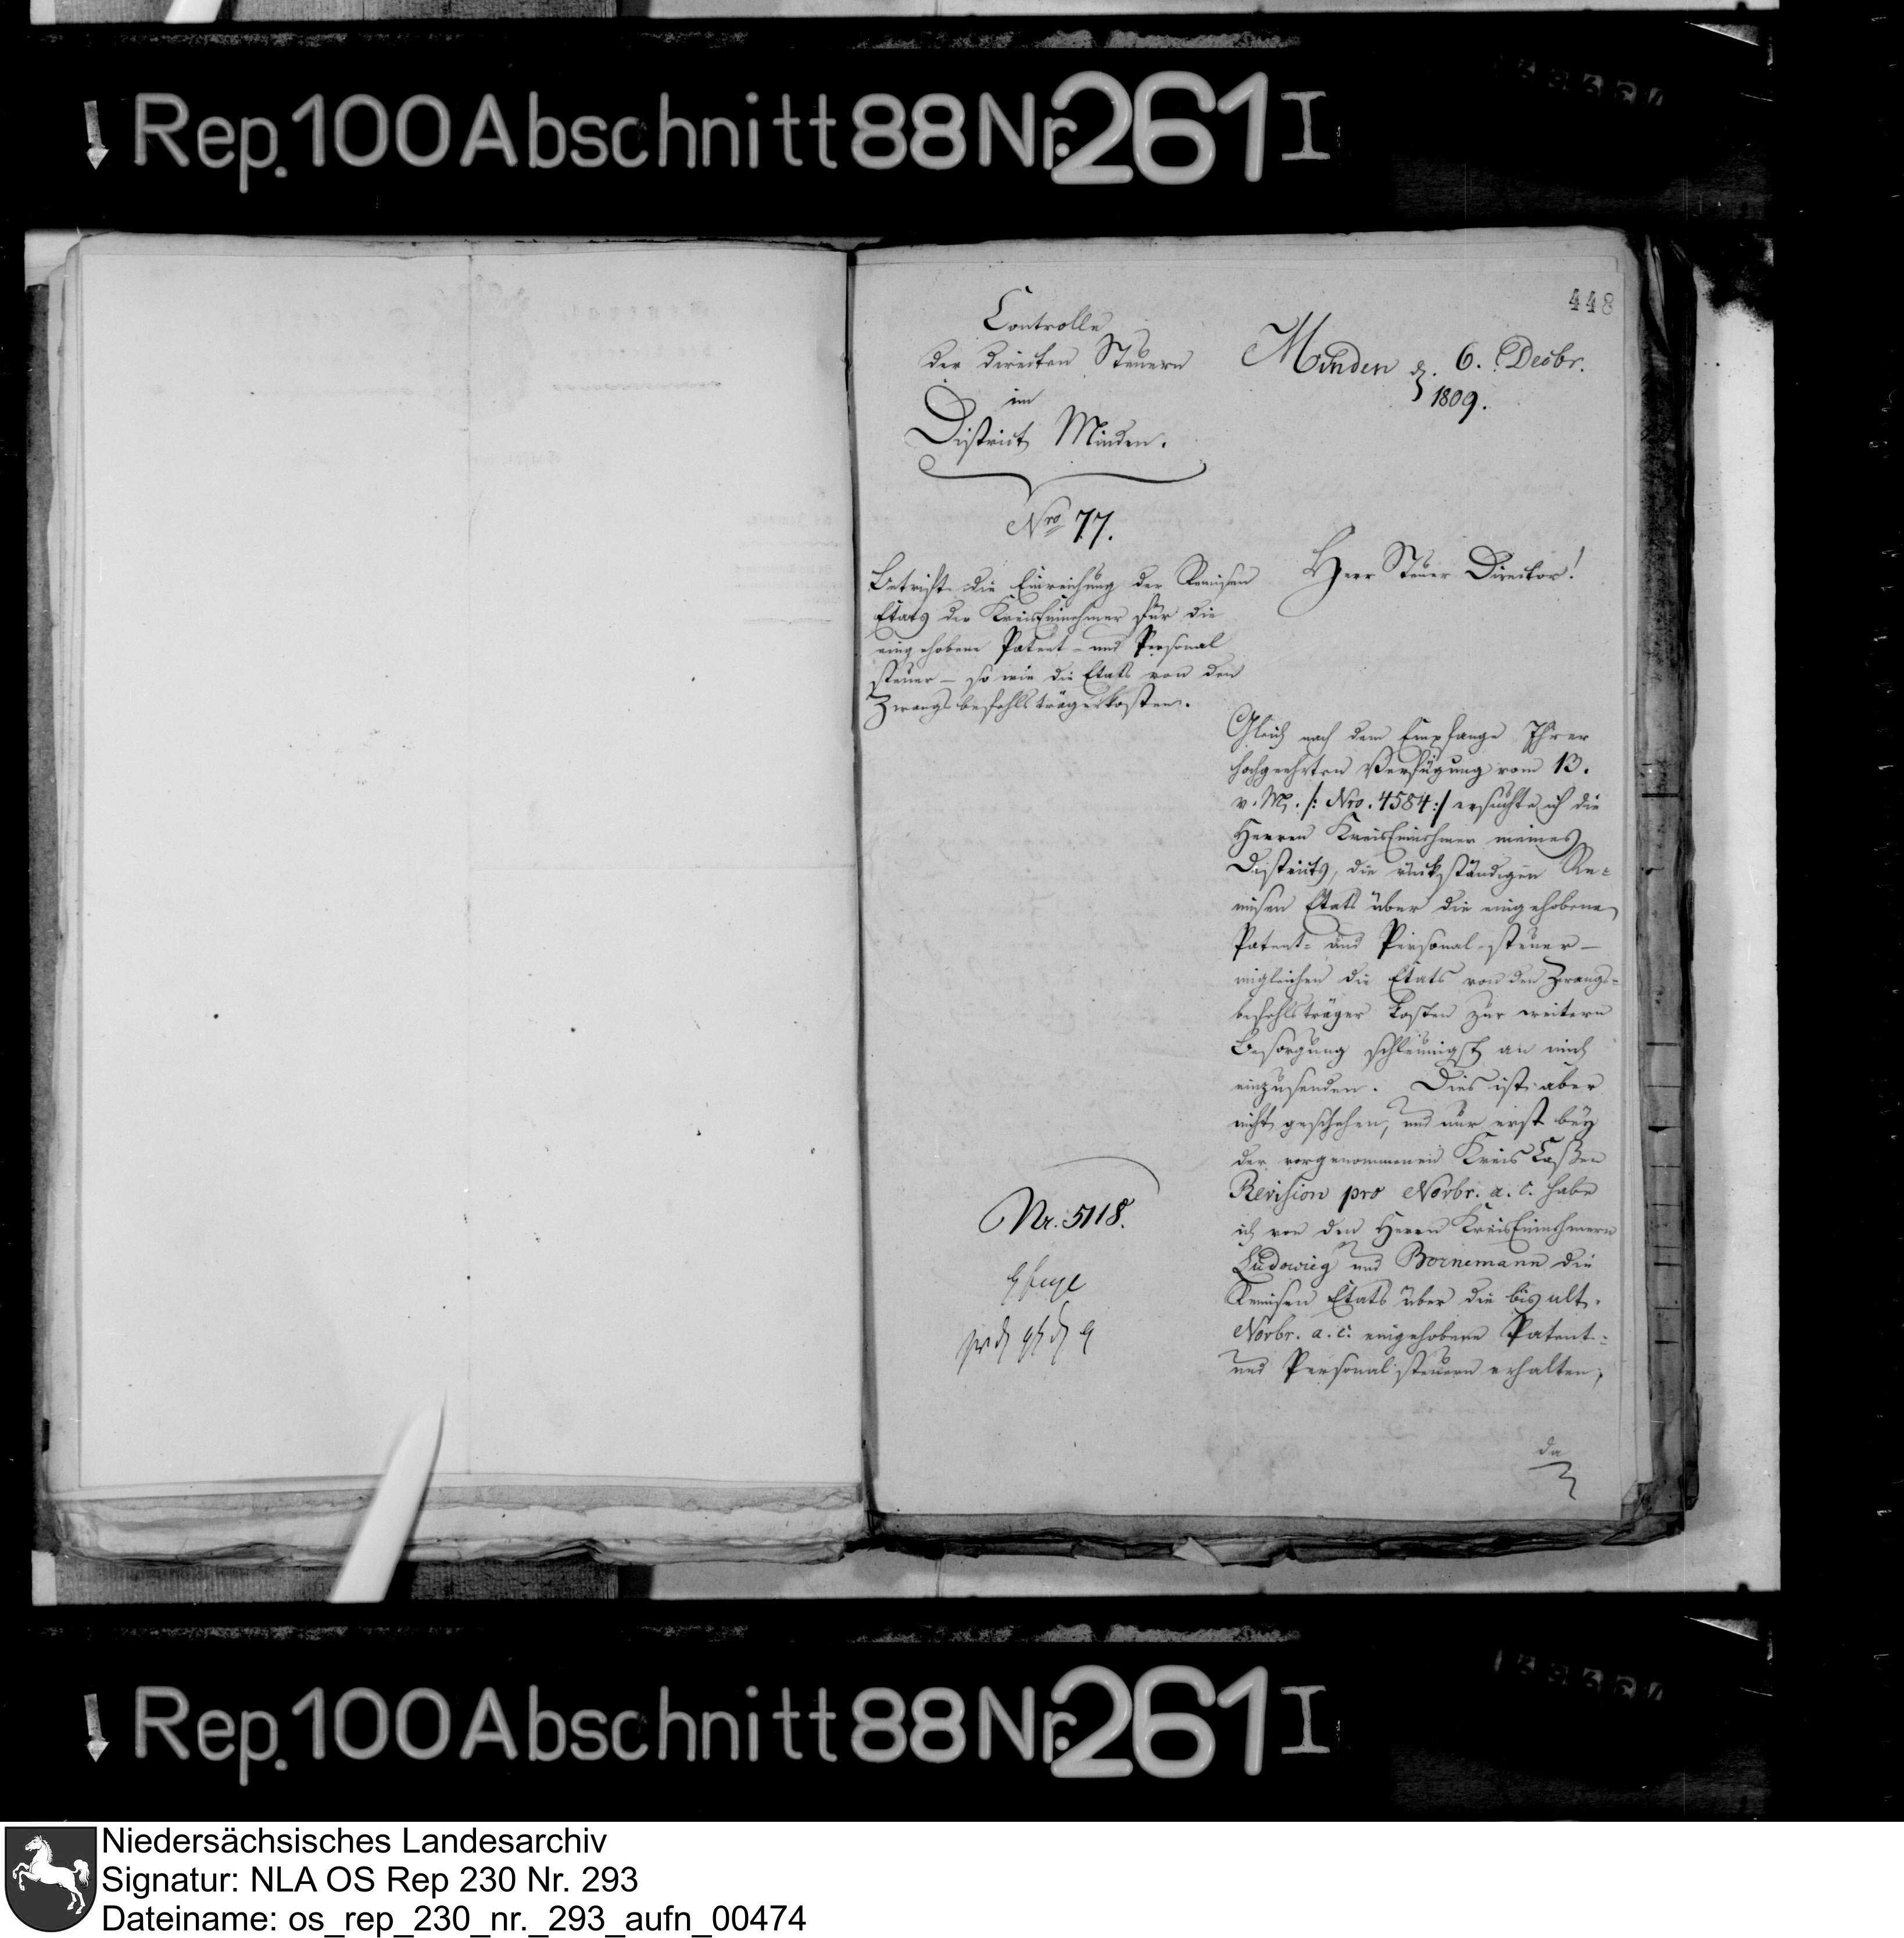 Rep. 100 Abschnitt 88 Nr. 261 I
448
Controlle
der directen Steuern
im
District Minden.
Minden d. 6. Decbr.
1809.
Nro 77.
Betrift die Einreichung der Remisen
Etats der KreisEinnehmer für die
eingehobene Patent- und Personal
steuer – so wie die Etats von den
Zwangsbefehlsträgerkosten.
Herr Steuer Director!
Gleich nach dem Empfange Ihrer
hochgeehrten Verfügung vom 13.
v. M. /: Nro. 4584 :/ ersuchte ich die
Herren KreisEinnehmer meines
Districts, die rückständigen Re=
misen Etats über die eingehobene
Patent= und Personal-steuer –
imgleichen die Etats von den Zwangs=
befehlsträger Kosten zur weitern
Besorgung schleunigst an mich
einzusenden. Dies ist aber
nicht geschehen, und nur erst bey
der vorgenommenen Kreis Cassen
Revision pro Novbr. a. c. habe
ich von den Herrn KreisEinnehmern
Ludowieg und Bornemann die
Remisen Etats über die bis ult.
Novbr. a. c. eingehobene Patent-
und Personalsteuern erhalten,
da
Nr. 5118.
Rep. 100 Abschnitt 88 Nr. 261 I
Niedersächsisches Landesarchiv
Signatur: NLA OS Rep 230 Nr. 293
Dateiname: os_rep_230_nr._293_aufn_00474